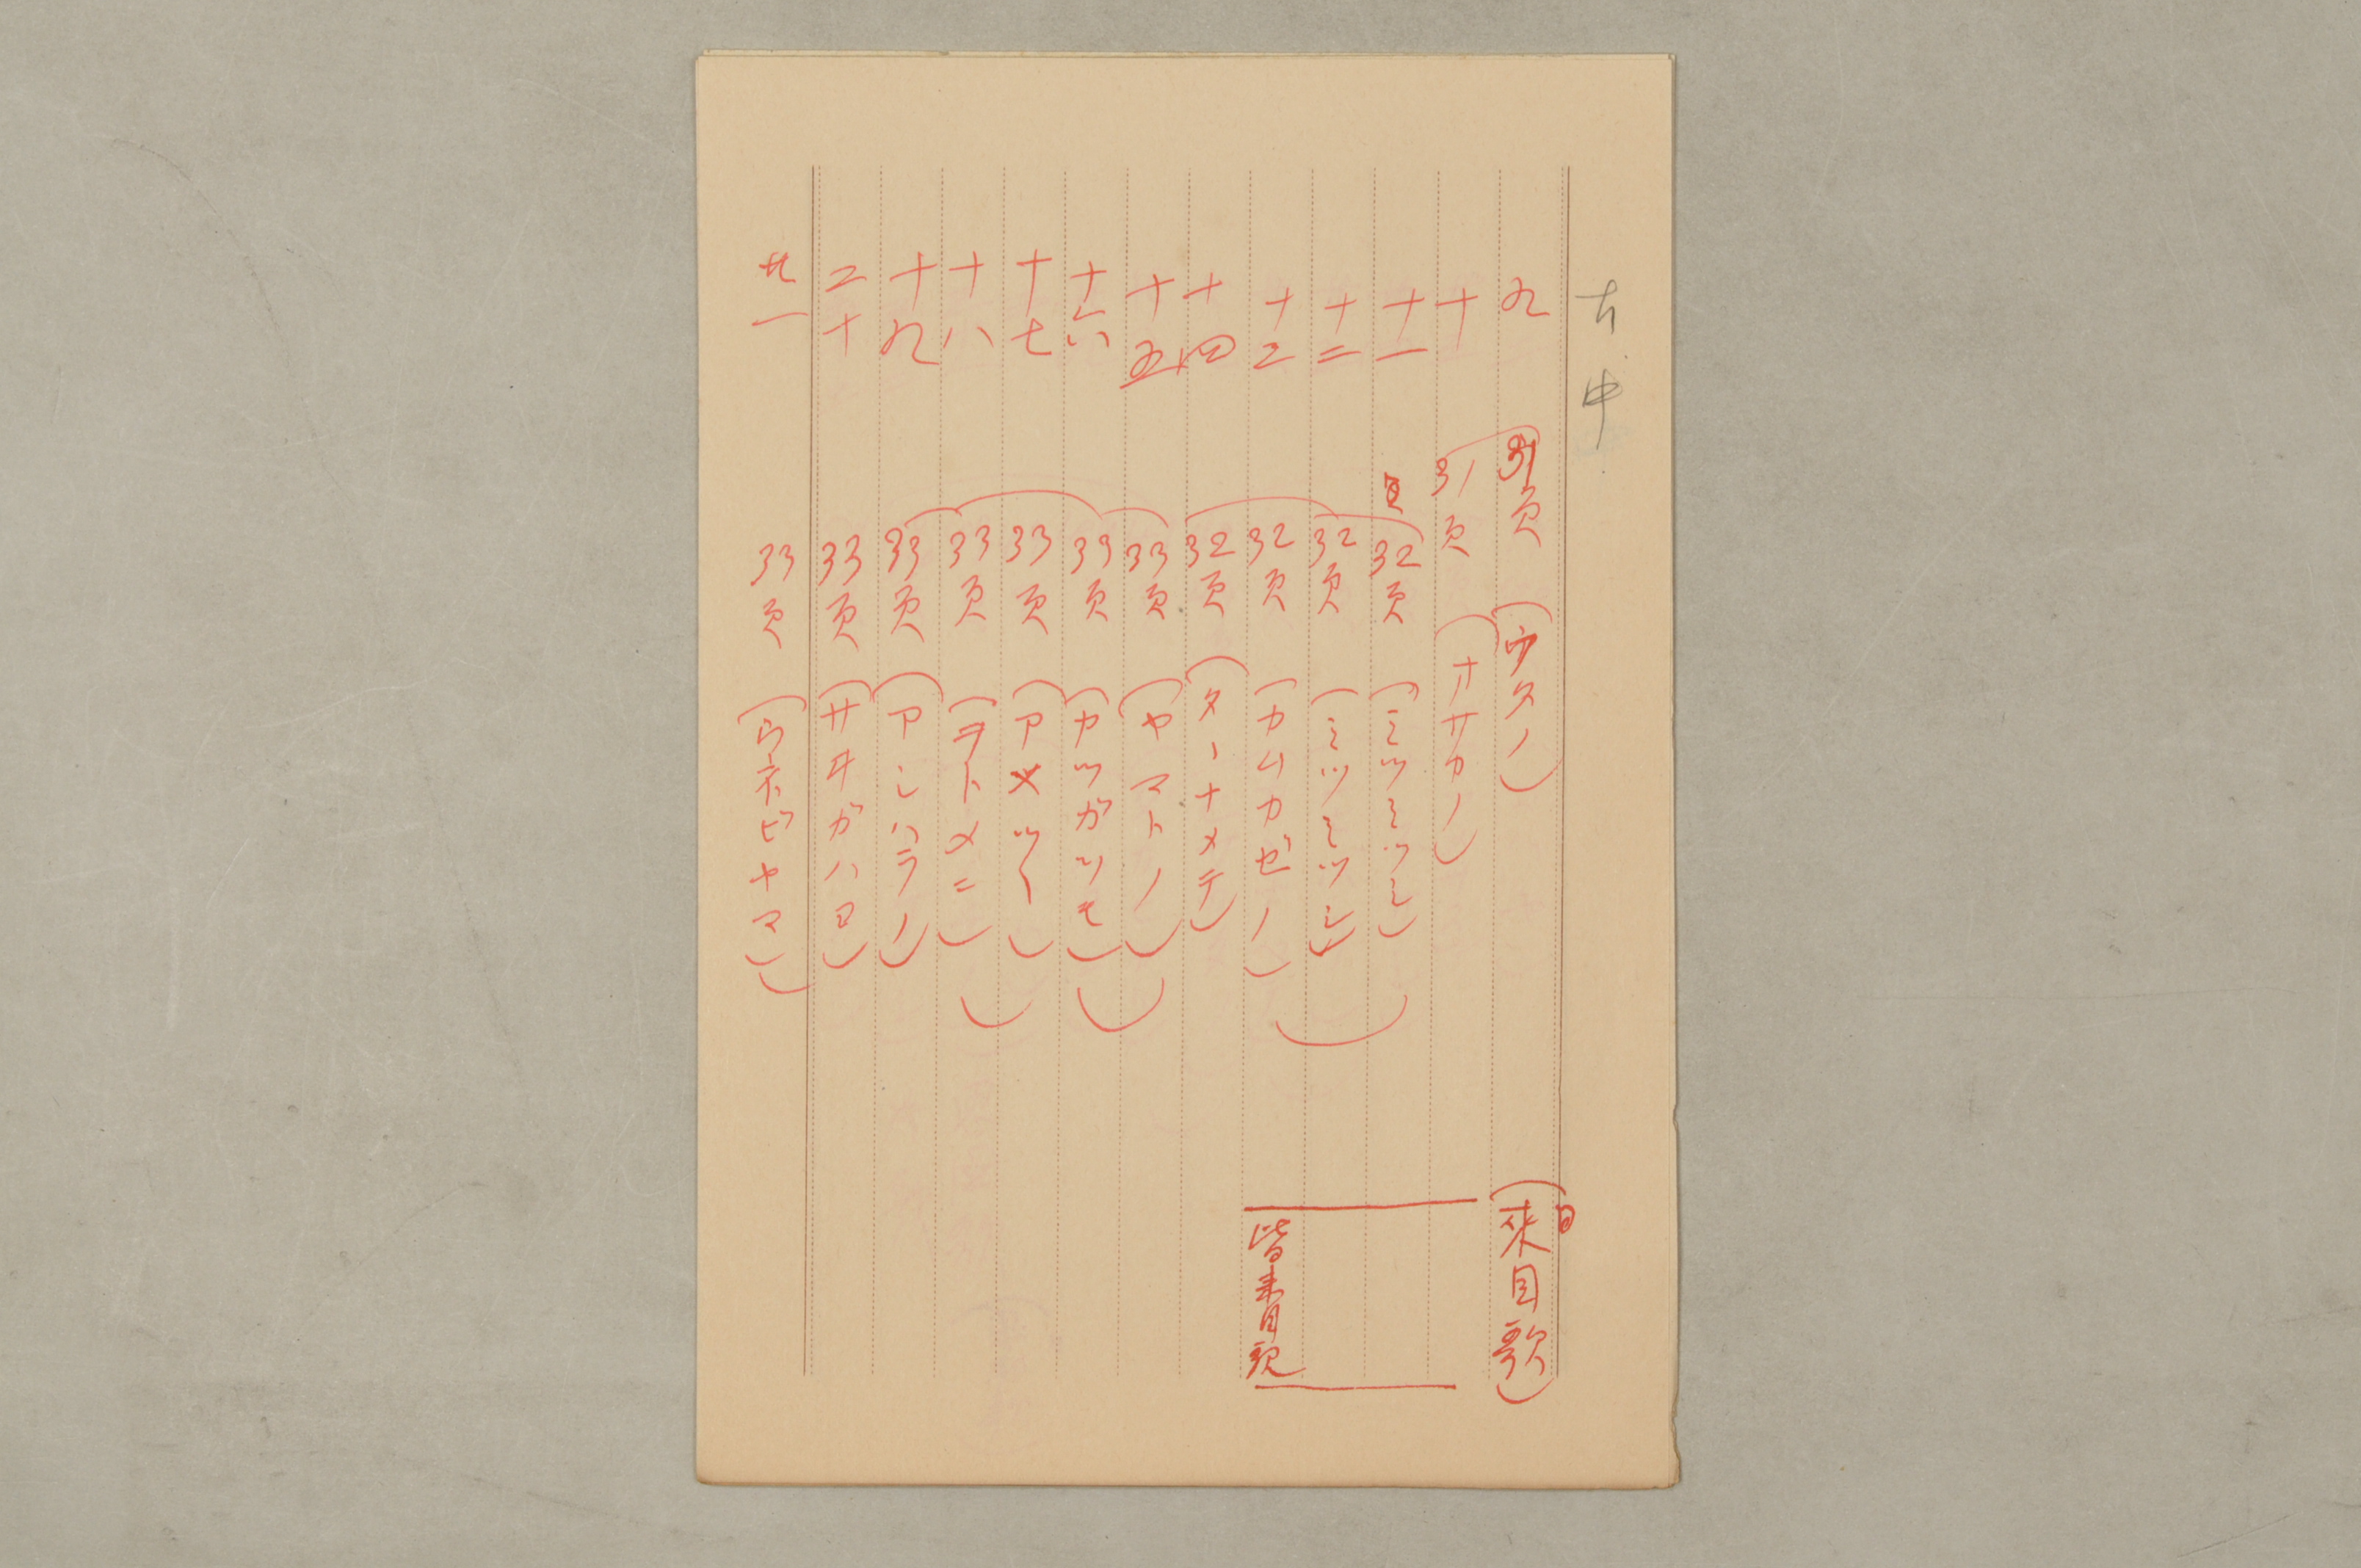 古中
九 31頁 (ウタノ) (来目歌)
十 31頁 (オサカノ)
十一 32頁 (ミツミツシ)
十二 32頁 (ミツミツシ)
十三 32頁 (カムカゼノ) 皆来目歌
十四 32頁 (タ丶ナメテ)
十五 33頁 (ヤマトノ)
十六 33頁 (カツガツモ)
十七 33頁 (アメツ丶)
十八 33頁 (ヲトメニ)
十九 33頁 (アシハラノ)
二十 33頁 (サヰガハヨ)
廿一 33頁 (ウネビヤマ)